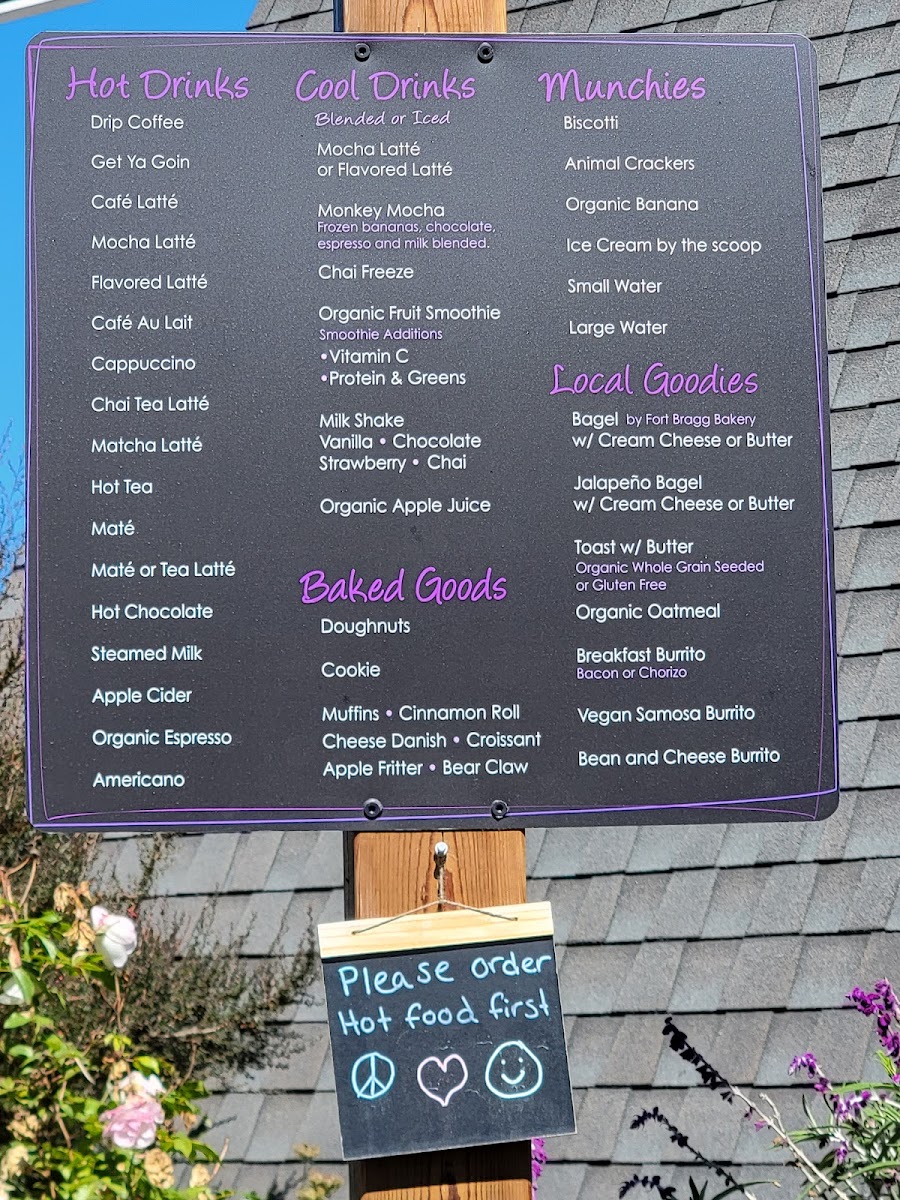 Hot Drinks
Drip Coffee
Get Ya Goin
Café Latté
Mocha Latté
Flavored Latté
Café Au Lait
Cappuccino
Chai Tea Latté
Matcha Latté
Hot Tea
Maté
Maté or Tea Latté
Hot Chocolate
Steamed Milk
Apple Cider
Organic Espresso
Americano
Cool Drinks
Blended or Iced
Mocha Latté
or Flavored Latté
Monkey Mocha
Frozen bananas, chocolate,
espresso and milk blended.
Chai Freeze
Organic Fruit Smoothie
Smoothie Additions
•Vitamin C
•Protein & Greens
Milk Shake
Vanilla • Chocolate
Strawberry • Chai
Organic Apple Juice
Baked Goods
Doughnuts
Cookie
Muffins • Cinnamon Roll
Cheese Danish • Croissant
Apple Fritter • Bear Claw
Munchies
Biscotti
Animal Crackers
Organic Banana
Ice Cream by the scoop
Small Water
Large Water
Local Goodies
Bagel by Fort Bragg Bakery
w/ Cream Cheese or Butter
Jalapeño Bagel
w/ Cream Cheese or Butter
Toast w/ Butter
Organic Whole Grain Seeded
or Gluten Free
Organic Oatmeal
Breakfast Burrito
Bacon or Chorizo
Vegan Samosa Burrito
Bean and Cheese Burrito
Please order
Hot food first